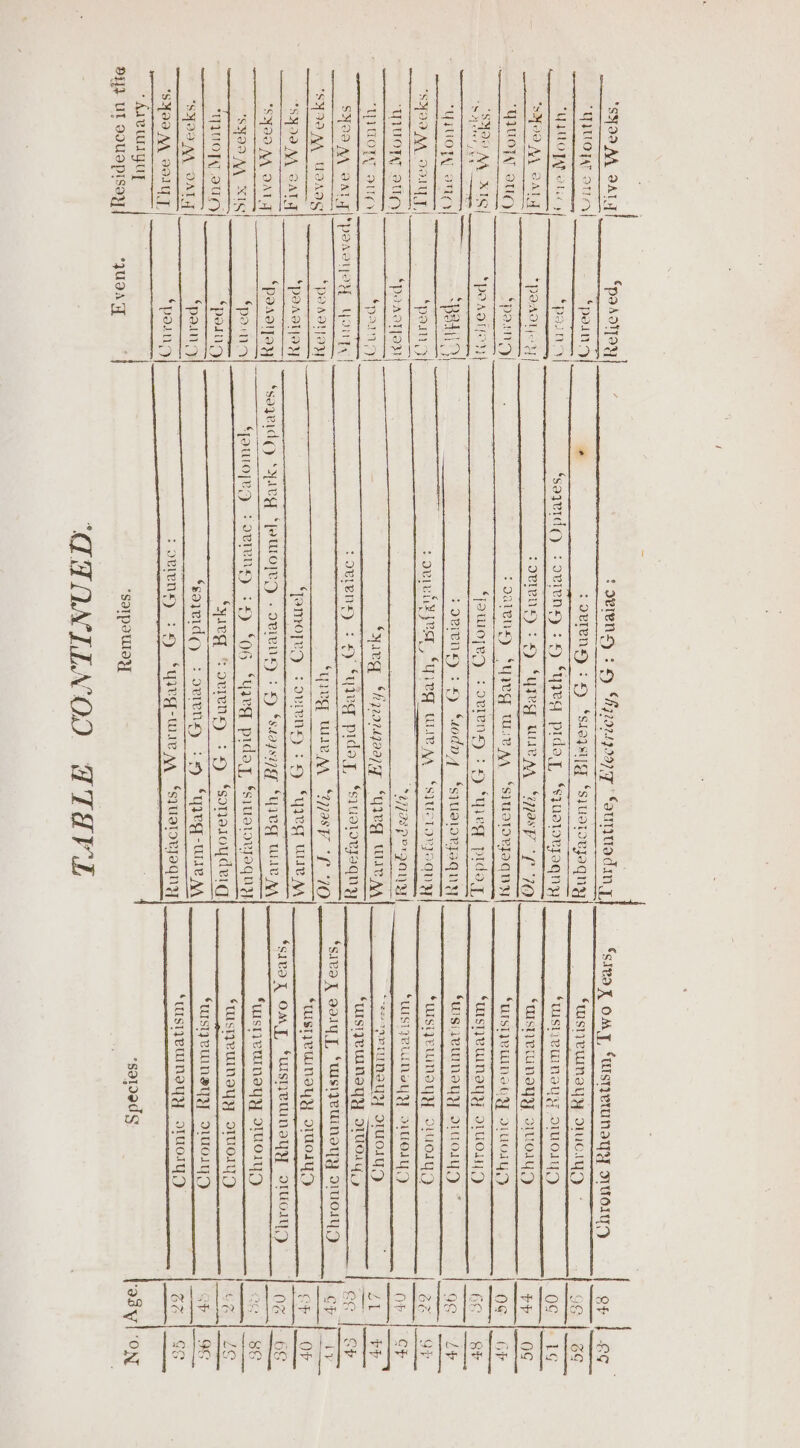 TABLE CONTINUED.
No. Age. Species. Remedies. Event. Residence in the Infirmary.
35 22 Chronic Rheumatism, Rubefacients, Warm-Bath, G: Guaiac: Cured, Three Weeks.
36 45 Chronic Rheumatism, Warm-Bath, G: Guaiac: Opiates, Cured, Five Weeks.
37 Chronic Rheumatism, Diaphoretics, G: Guaiac: Bark, Cured, One Month.
38 Chronic Rheumatism, Rubefacients, Tepid Bath, 90, G: Guaiac: Calomel, Cured, Six Weeks.
39 20 Chronic Rheumatism, Two Years, Warm Bath, Blisters, G: Guaiac: Calomel, Bark, Opiates, Relieved, Five Weeks.
40 43 Chronic Rheumatism, Warm Bath, G: Guaiac: Calomel, Relieved, Five Weeks.
45 Chronic Rheumatism, Three Years, Ol. J. Aselli, Warm Bath, Relieved, Seven Weeks.
43 33 Chronic Rheumatism, Rubefacients, Tepid Bath, G: Guaiac: Much Relieved, Five Weeks
44 17 Chronic Rheumatism, Warm Bath, Electricity, Bark, Cured, One Month.
45 40 Chronic Rheumatism, Relieved, One Month.
46 22 Chronic Rheumatism, Rubefacients, Warm Bath, Cured, Three Weeks.
47 36 Chronic Rheumatism, Rubefacients, Vapor, G: Guaiac: Cured, One Month.
48 39 Chronic Rheumatism, Tepid Bath, G: Guaiac: Calomel, Relieved, Six Weeks.
49 50 Chronic Rheumatism, Rubefacients, Warm Bath, Guaiac: Cured, One Month.
50 44 Chronic Rheumatism, Ol. J. Aselli, Warm Bath, G: Guaiac: Relieved, Five Weeks.
51 50 Chronic Rheumatism, Rubefacients, Tepid Bath, G: Guaiac: Opiates, Cured, One Month.
52 36 Chronic Rheumatism, Rubefacients, Blisters, G: Guaiac: Cured, One Month.
53 48 Chronic Rheumatism, Two Years, Turpentine, Electricity, G: Guaiac: Relieved, Five Weeks.